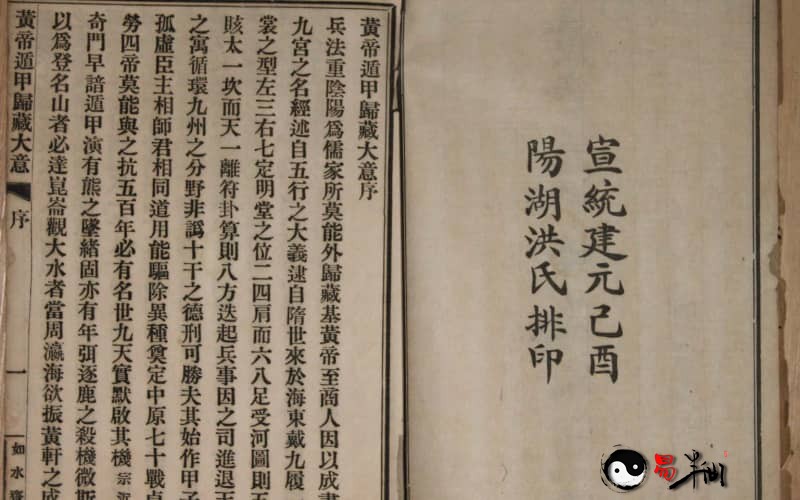 宣統建元己酉
陽湖洪氏排印
黃帝遁甲歸藏大意序
兵法重陰陽爲儒家所莫能外歸藏基黃帝至商人因以成書
九宮之名經述自五行之大義逮自隋世來於海東戴九履
裳之型左三右七定明堂之位二四肩而六八足受河圖則
賅太一坎而天一離符卦算則八方迭起兵事因之司進退
之寓循環九州之分野非譌十干之德刑可勝夫其始作甲子
孤虛臣主相師君相同道用能驅除異種奠定中原七十戰
勞四帝莫能與之抗五百年必有名世九天實默啟其機宗
奇門早諳遁甲演有熊之墜緒固亦有年弭逐鹿之殺機微斯
以爲登名山者必達崑崙觀大水者當周瀛海欲振黃軒之
黃帝遁甲歸藏大意
序
一
如水
易半仙